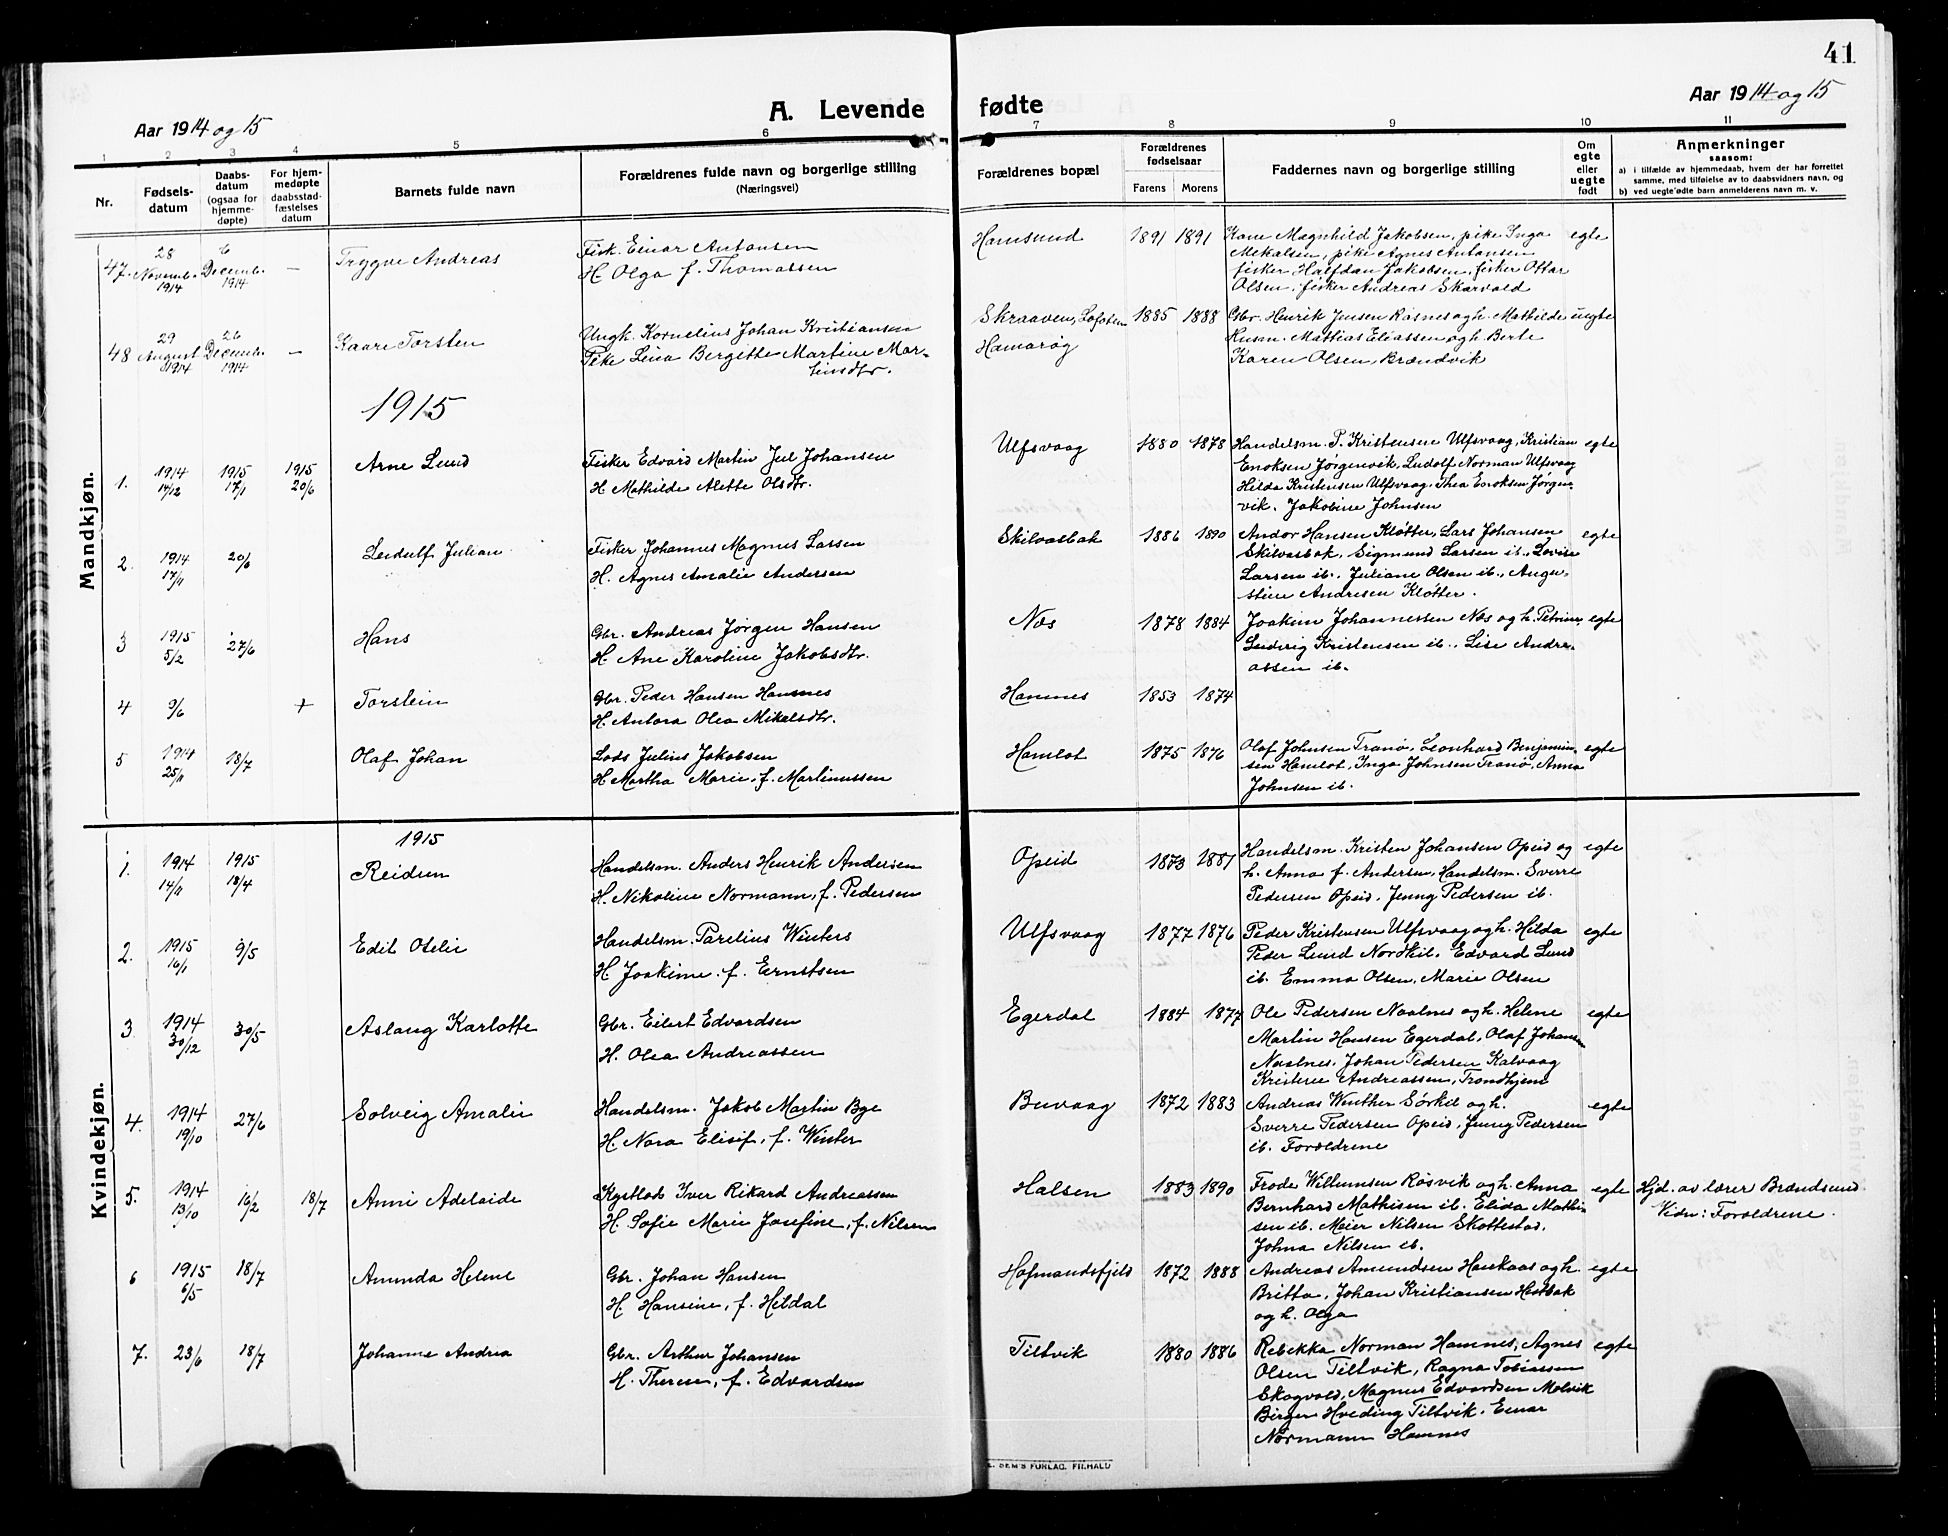 41
Aar 1914 og 15
A. Levende fødte
Aar 1914 og 15
1 2 3 4 5 6 7 8 9 10 11
Nr.
Fødsels-
datum
Daabs-
datum
(ogsaa for
hjemme-
døpte)
For hjem-
medøpte
daabsstad-
fæstelses
datum
Barnets fulde navn
Forældrenes fulde navn og borgerlige stilling
(Næringsvei)
Forældrenes bopæl
Forældrenes
fødselsaar
Farens Morens
Faddernes navn og borgerlige stilling
Om
egte
eller
uegte
født
Anmerkninger
saasom:
a) i tilfælde av hjemmedaab, hvem der har forrettet
samme, med tilføielse av to daabsvidners navn, og
b) ved uegte fødte barn anmelderens navn m. v.
Mandkjøn.
47. 28 Novemb. 1914 6 Decemb. 1914 — Trygve Andreas
Fisk. Einar Antonsen
H Olga f. Thomassen
Hamsund 1891 1891
Kone Magnhild Jakobsen, pike Inga egte
Mikalsen, pike Agnes Antonsen
fisker Halfdan Jakobsen, fisker Ottar
Olsen, fisker Andreas Skarvold
48 29 August 1914 26 Decemb. 1914 — Kaare Torsten
Ungk. Kornelius Johan Kristiansen
Pike Lina Bergitte Martine Mar-
tinsdtr.
Skraaven, Lofoten 1885 1888
Hamarøg
Gbr. Henrik Jensen Røsnes og h. Mathilde uegte
Husm. Mathias Eliassen og h. Berte
Karen Olsen, Brændvik
1915
1. 1914 14/12 1915 17/1 1915 20/6 Arne Lund
Fisker Edvard Martin Jul Johansen
H Mathilde Alette Olsdtr.
Ulfsvaag 1880 1878
Handelsm. P. Kristensen Ulfsvaag, Kristian egte
Enoksen Jørgenvik, Ludolf Norman Ulfsvaag
Hilda Kristensen Ulfsvaag, Thea Enoksen Jørgen-
vik. Jakobine Johnsen
2. 1914 17/11 20/6 Leidulf Julian
Fisker Johannes Magnus Larsen
H. Agnes Amalie Andersen
Skilvasbak 1886 1890
Andor Hansen Kløtter, Lars Johansen egte
Skilvasbak, Sigmund Larsen ib., Lovise
Larsen ib., Juliane Olsen ib., Augu-
stine Andresen Kløtter.
3 1915 5/2 27/6 Hans
Gbr. Andreas Jørgen Hansen
H. Ane Karoline Jakobsdtr.
Næs 1878 1884
Joakim Johannessen Næs og h. Petrine egte
Ludvig Kristensen ib., Lise Andre-
assen ib.
4 9/6 + Torstein
Gbr. Peder Hansen Hamnes
H. Antora Olea Mikalsdtr.
Hamnes 1853 1874
5 1914 25/11 18/7 Olaf Johan
Lods Julius Jakobsen
H Martha Marie, f. Martinussen
Hamlot 1875 1876
Olaf Johnsen Tranø, Leonhard Benjamin- egte
sen Hamlot, Inga Johnsen Tranø, Anna
Johnsen ib.
Kvindekjøn.
1915
1. 1914 14/11 1915 18/4 Reidun
Handelsm. Anders Henrik Andersen
H. Nikoline Normann, f. Pedersen
Opeid 1873 1881
Handelsm. Kristen Johansen Opeid og egte
h. Anna f. Andersen, Handelsm. Sverre
Pedersen Opeid. Jenny Pedersen ib.
2. 1915 16/1 9/5 Edil Otelie
Handelsm. Parelius Winters
H Joakime. f. Ernstsen
Ulfsvaag 1877 1876
Peder Kristensen Ulfsvaag og h. Hilda egte
Peder Lund Nordkil. Edvard Lund
ib. Emma Olsen, Marie Olsen
3 1914 30/12 30/5 Aslaug Karlotte
Gbr. Eilert Edvardsen
H. Olea Andreassen
Egerdal 1884 1877
Ole Pedersen Naalnes og h. Helene egte
Martin Hansen Egerdal, Olaf Johansen
Naalnes. Johan Pedersen Kalvaag
Kristine Andreassen, Trondhjem
4. 1914 19/10 27/6 Solveig Amalie
Handelsm. Jakob Martin Bye
H. Nora Elisif, f. Winter
Buvaag 1872 1883
Andreas Winther Sørkil og h. egte
Sverre Pedersen Opeid, Jenny Pedersen
ib. Forældrene
5. 1914 13/10 16/2 18/7 Anni Adelaide
Kystlods Iver Rikard Andreassen
H. Sofie Marie Josefine, f. Nilsen
Halsen 1883 1890
Frode Willumsen Røsvik og h. Anna egte
Bernhard Mathisen ib. Elida Mathi-
sen ib. Meier Nilsen Skottestad.
Johna Nilsen ib.
Hjd. av lærer Brændsund
Vidn: Forældrene.
6 1915 6/5 18/7 Amunda Helene
Gbr. Johan Hansen
H Hansine, f. Hildal
Hofmandsfjeld 1872 1888
Andreas Amundsen Haukaas og h. egte
Britta, Johan Kristiansen Hestbak
og h. Olga
7. 23/6 18/7 Johanne Andrea
Gbr. Arthur Johansen
H. Therese, f. Edvardsen
Tiltvik 1880 1886
Rebekka Norman Hamnes, Agnes egte
Olsen Tiltvik, Ragna Tobiassen
Skogvold, Magnus Edvardsen Molvik
Birger Hveding Tiltvik. Einar
Normann Hamnes
E. SEM'S FORLAG, FR.HALD